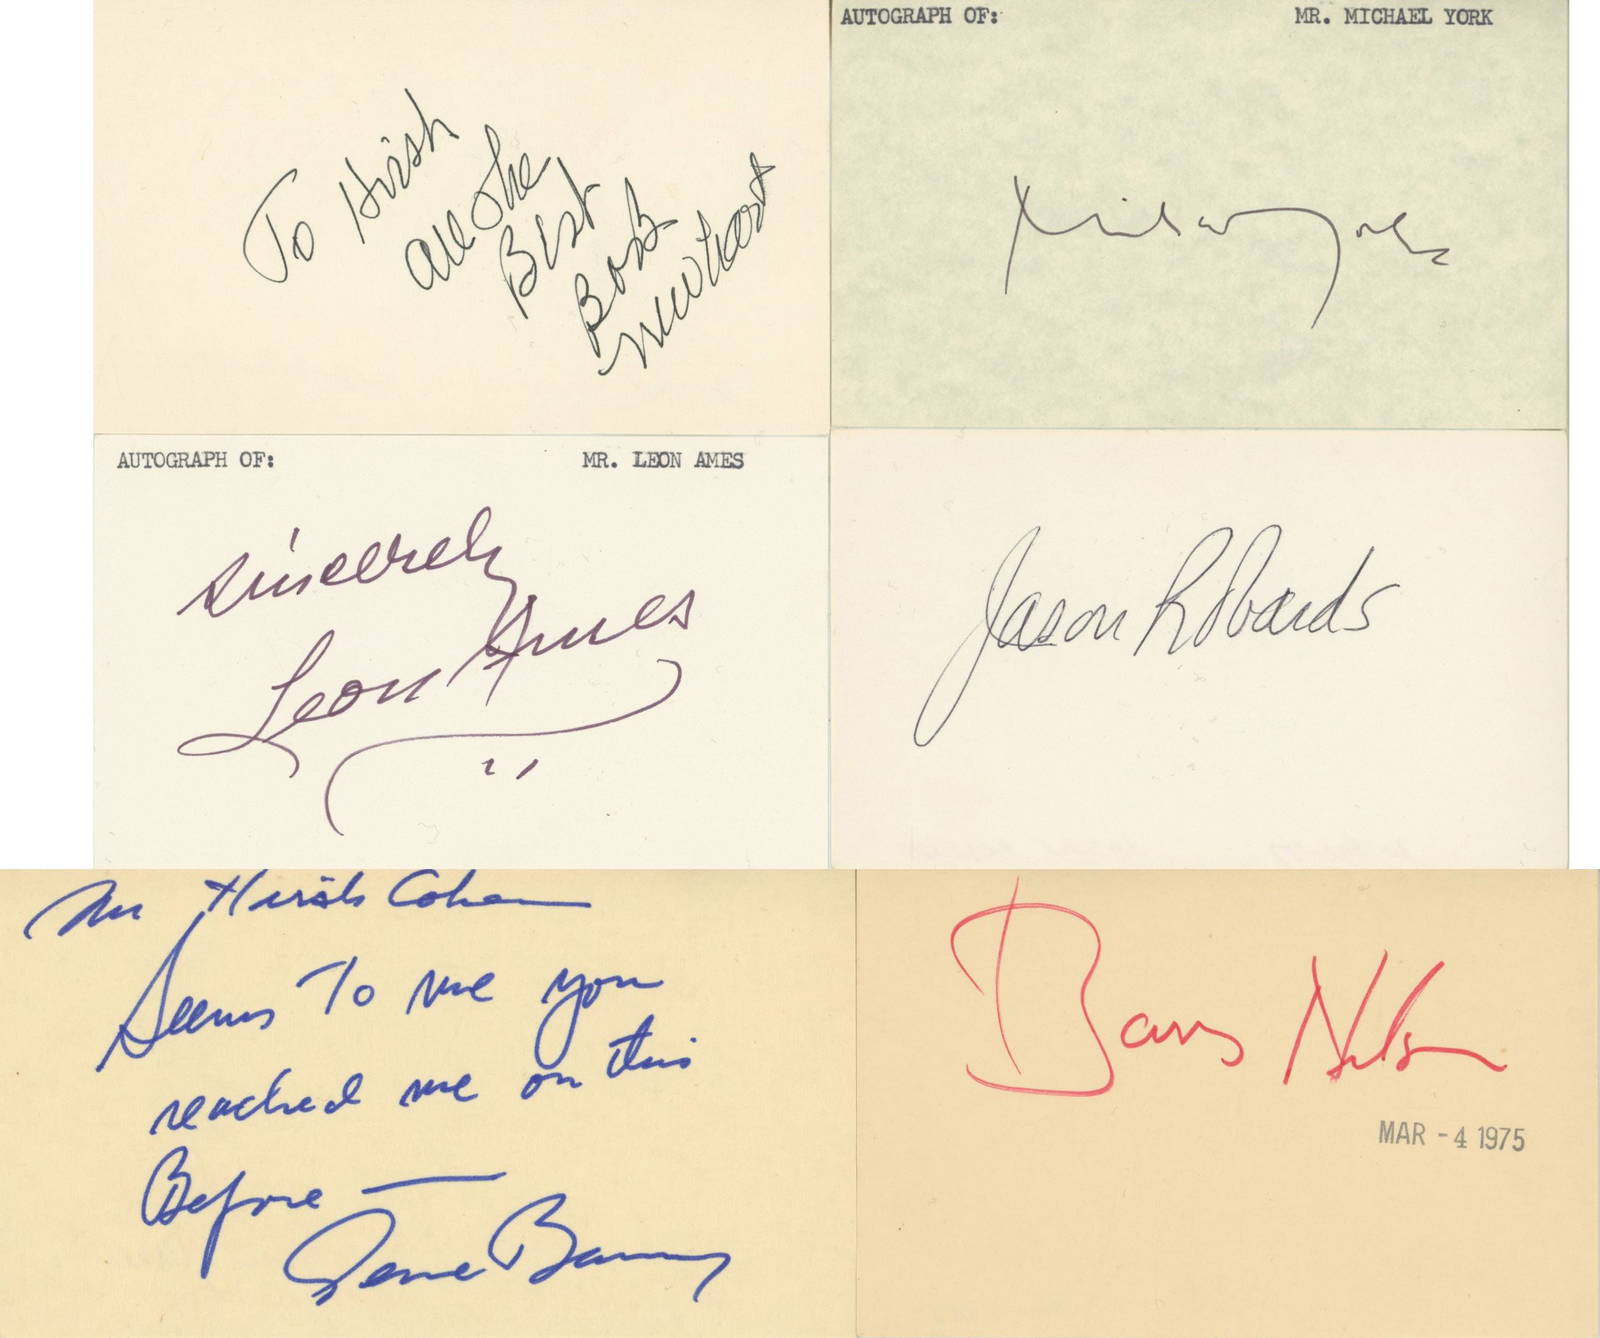 To Hirsh
All the
Best
Bob
Newhart
AUTOGRAPH OF: MR. MICHAEL YORK
Michael York
AUTOGRAPH OF: MR. LEON AMES
Sincerely
Leon Ames
Jason Robards
Mr Hirsh Cohen
Seems To me you
reached me on this
Before —
Gene Barry
Barry Nelson
MAR - 4 1975